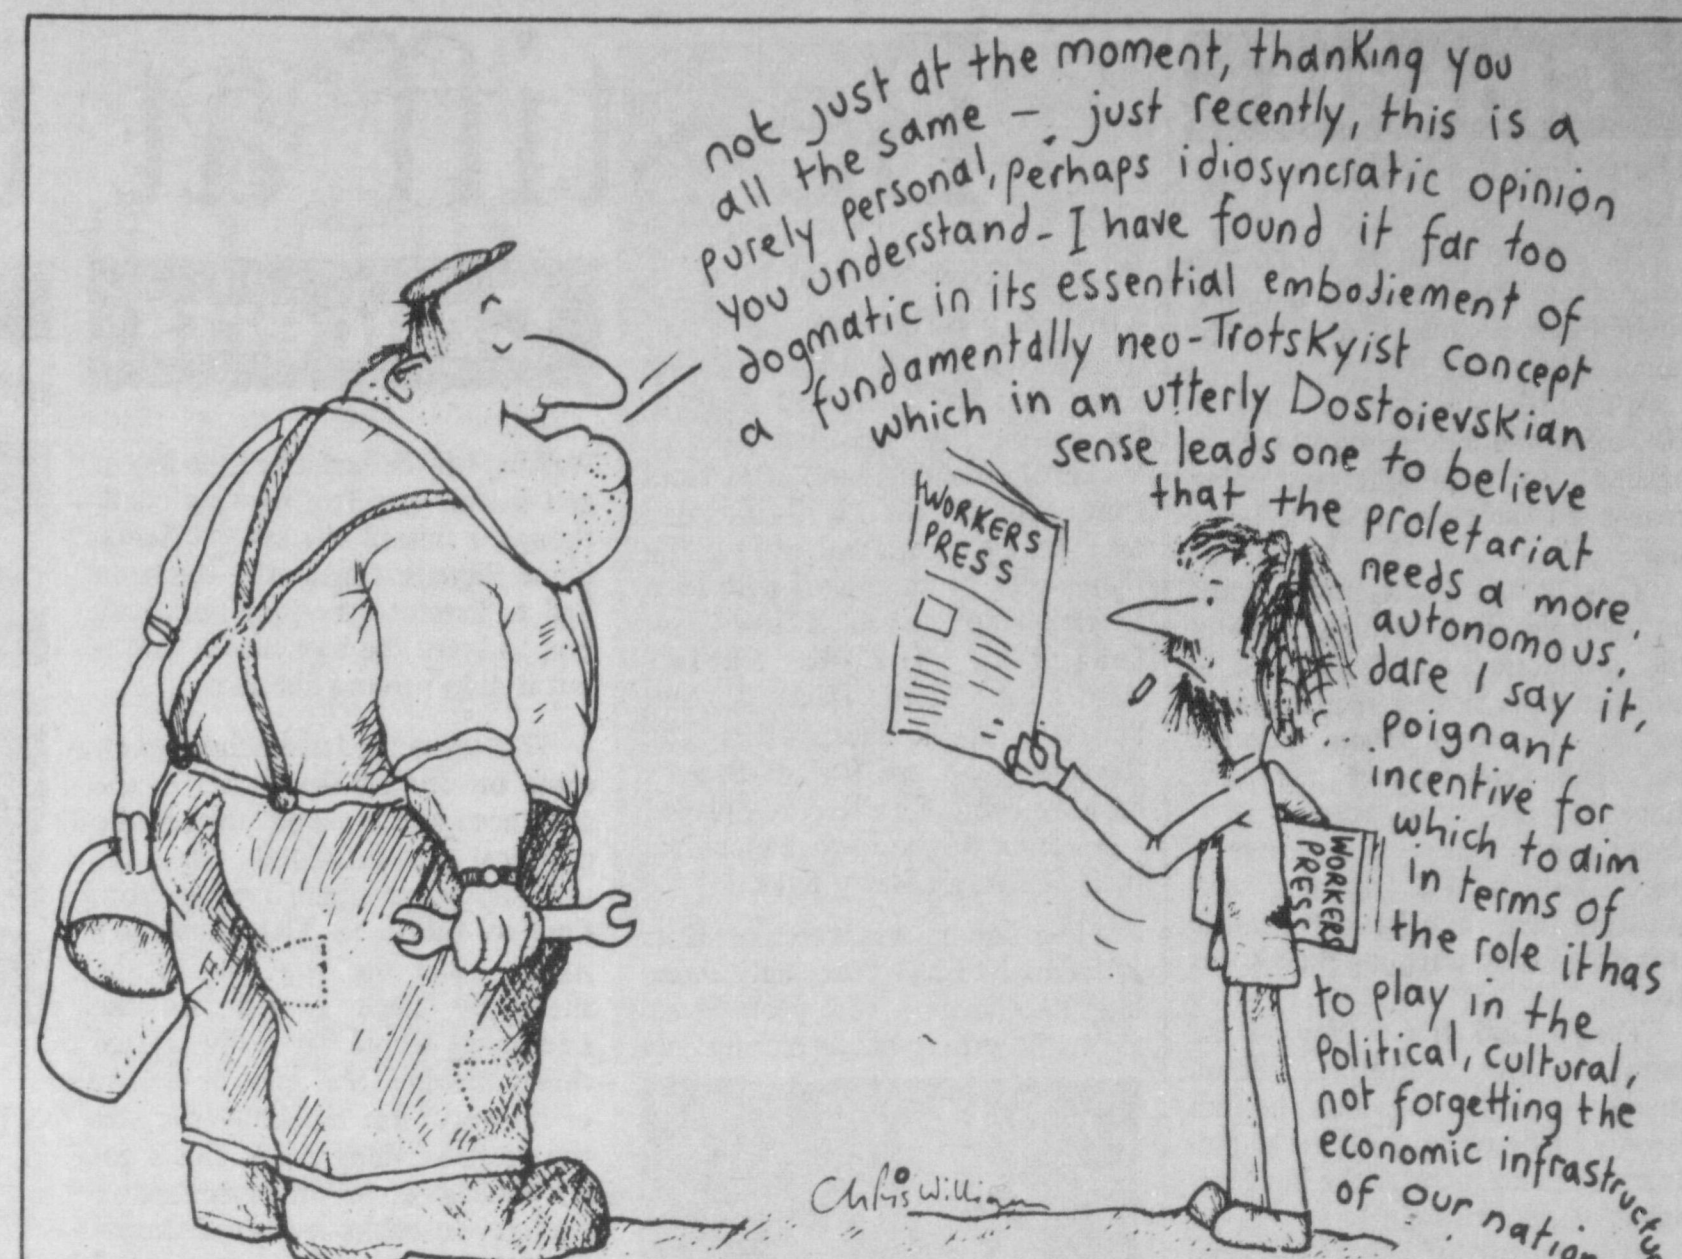 not just at the moment, thanking you
all the same - just recently, this is a
purely personal, perhaps idiosyncratic opinion
you understand - I have found it far too
dogmatic in its essential embodiement of
a fundamentally neo-Trotskyist concept
which in an utterly Dostoievskian
sense leads one to believe
that the proletariat
needs a more,
autonomous,
dare I say it,
poignant
incentive for
which to aim
in terms of
the role it has
to play in the
political, cultural,
not forgetting the
economic
of our
WORKERS
PRESS
WORKERS
PRESS
Chris